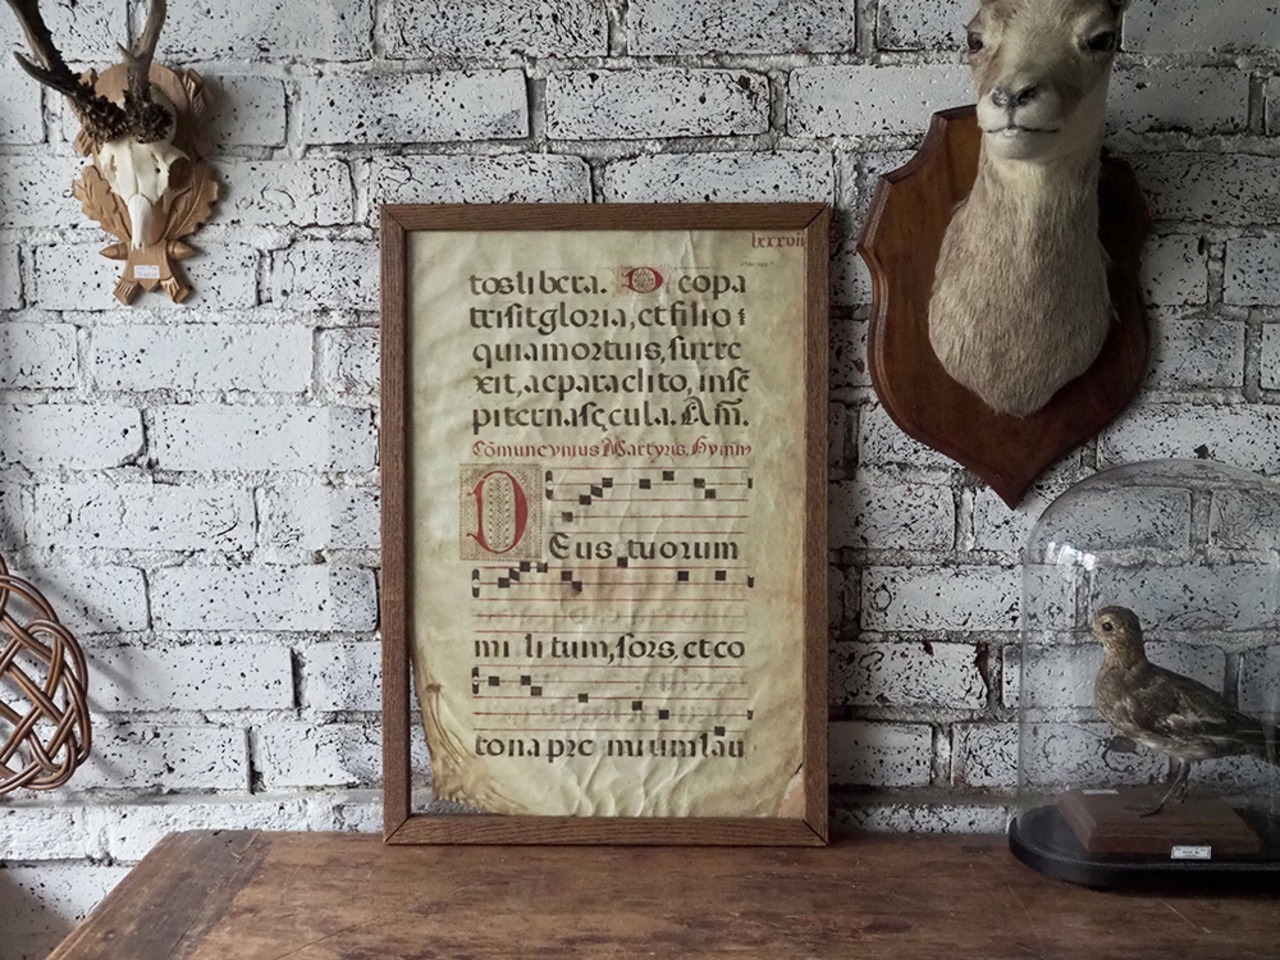 lxxxvii
tos libera. D eo pa
tri sit gloria, et filio
qui a mortuis, surre
xit, ac paraclito, in sē
piterna sęcula. Am̄.
Cōmune vnius Martyris. Hymn
D
Eus tuorum
mi li tum, sors, et co
rona pre mium lau